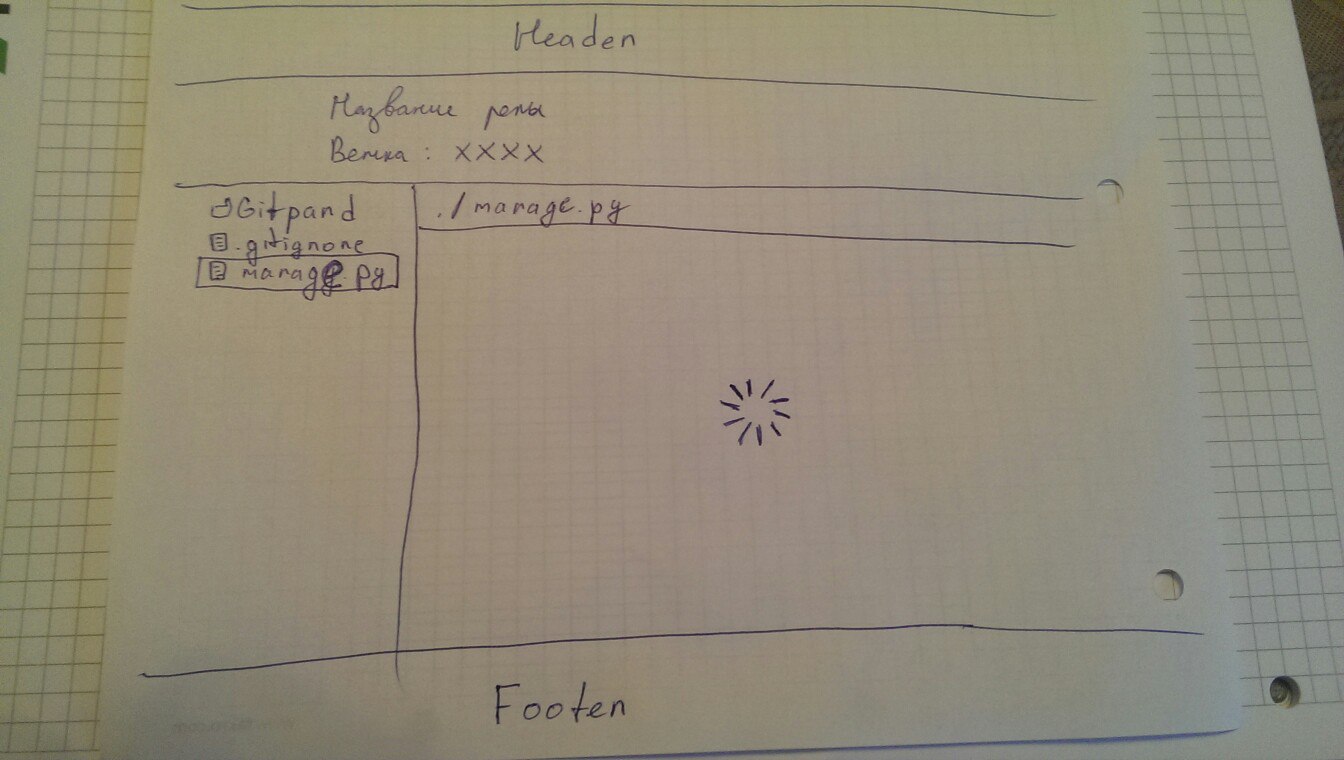 Header
Название репы
Ветка : XXXX
Gitpand
.gitignore
manage.py
./manage.py
Footer